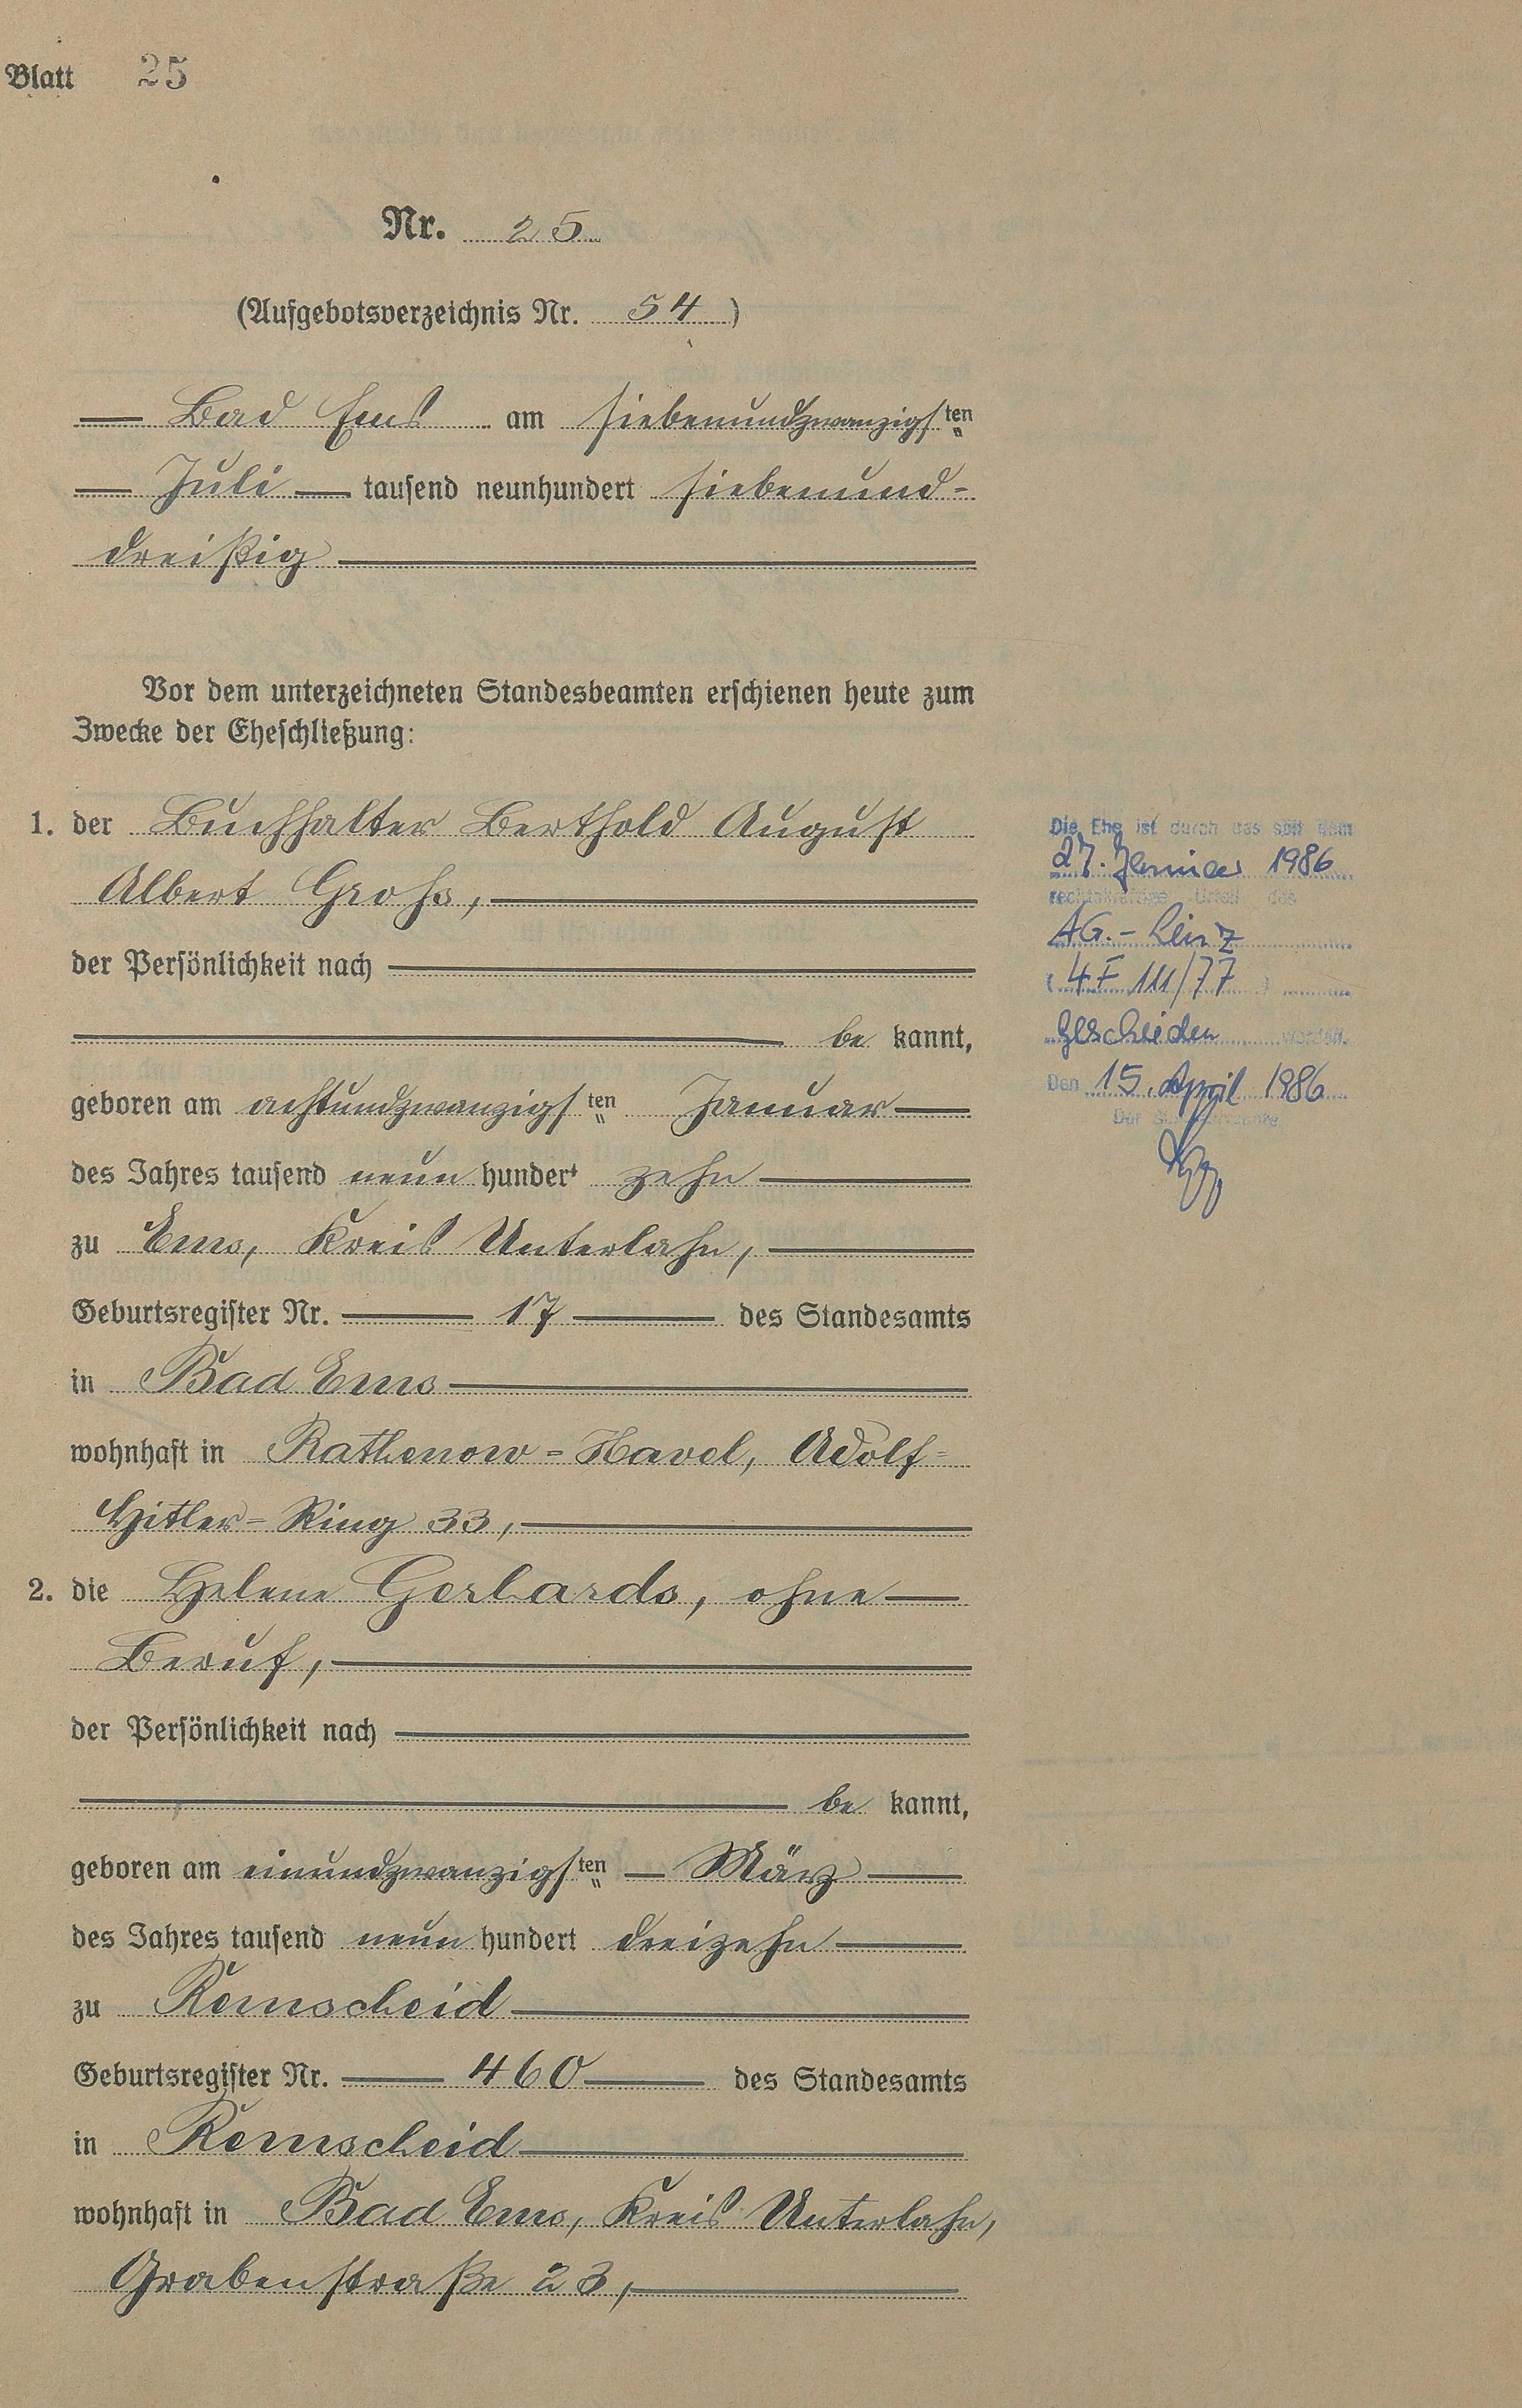 Blatt 25
Nr. 25
(Aufgebotsverzeichnis Nr. 54)
Bad Ems am siebenundzwanzigsten
Juli tausend neunhundert siebenund-
dreißig
Vor dem unterzeichneten Standesbeamten erschienen heute zum
Zwecke der Eheschließung:
1. der Buchhalter Berthold August
Albert Grohs,
der Persönlichkeit nach
be kannt,
geboren am achtundzwanzigsten Januar
des Jahres tausend neun hundert zehn
zu Ems, Kreis Unterlahn,
Geburtsregister Nr. 17 des Standesamts
in Bad Ems
wohnhaft in Rathenow-Havel, Adolf-
Hitler-Ring 33,
2. die Helene Gerhards, ohne
Beruf,
der Persönlichkeit nach
be kannt,
geboren am einundzwanzigsten März
des Jahres tausend neun hundert dreizehn
zu Remscheid
Geburtsregister Nr. 460 des Standesamts
in Remscheid
wohnhaft in Bad Ems, Kreis Unterlahn,
Grabenstraße 23,
Die Ehe ist durch das seit dem
27. Januar 1986
rechtskräftige Urteil des
AG.-Linz
(4 F 111/77)
geschieden worden.
Den 15. April 1986
Der Standesbeamte